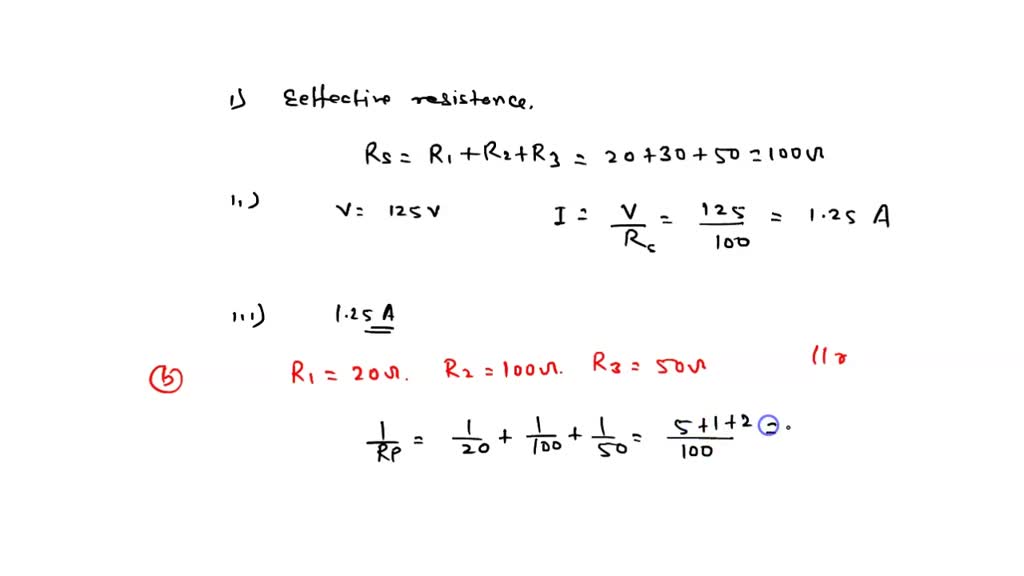 i) Eeffective resistence.
Rs = R1 + R2 + R3 = 20 + 30 + 50 = 100Ω
ii) V = 125V I = V/Rs = 125/100 = 1.25 A
iii) 1.25 A
(b) R1 = 20Ω. R2 = 100Ω. R3 = 50Ω
1/Rp = 1/20 + 1/100 + 1/50 = 5+1+2/100 =